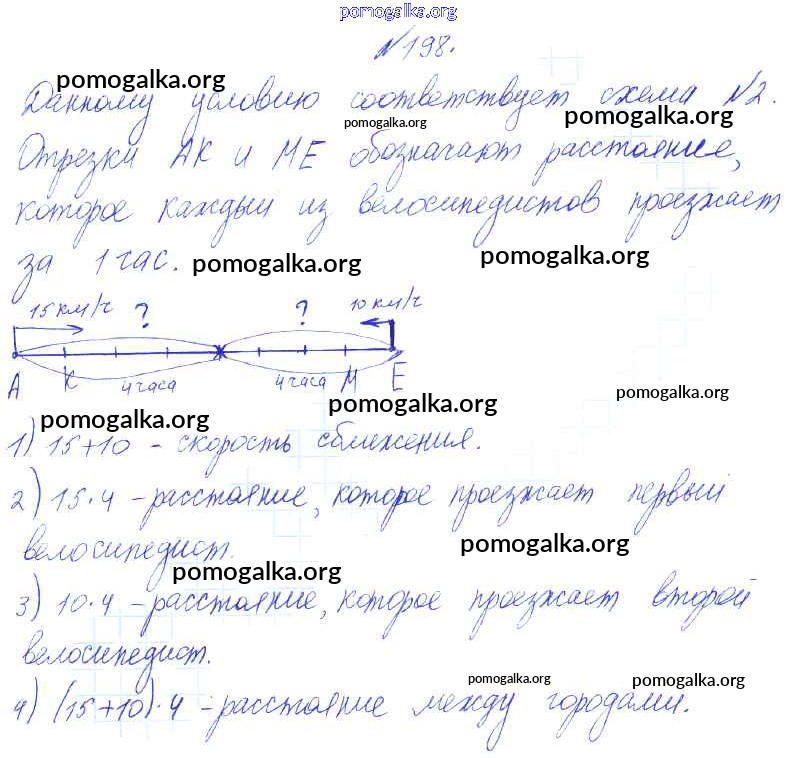 pomogalka.org
№198.
pomogalka.org
Данному условию соответствует схема №2.
pomogalka.org pomogalka.org
Отрезки АК и МЕ обозначают расстояние,
которое каждый из велосипедистов проезжает
за 1 час. pomogalka.org pomogalka.org
15 км/ч ? ? 10 км/ч
А К 4 часа 4 часа М Е
pomogalka.org pomogalka.org pomogalka.org
1) 15+10 - скорость сближения.
2) 15·4 - расстояние, которое проезжает первый
велосипедист. pomogalka.org
pomogalka.org
3) 10·4 - расстояние, которое проезжает второй
велосипедист.
pomogalka.org pomogalka.org
4) (15+10)·4 - расстояние между городами.